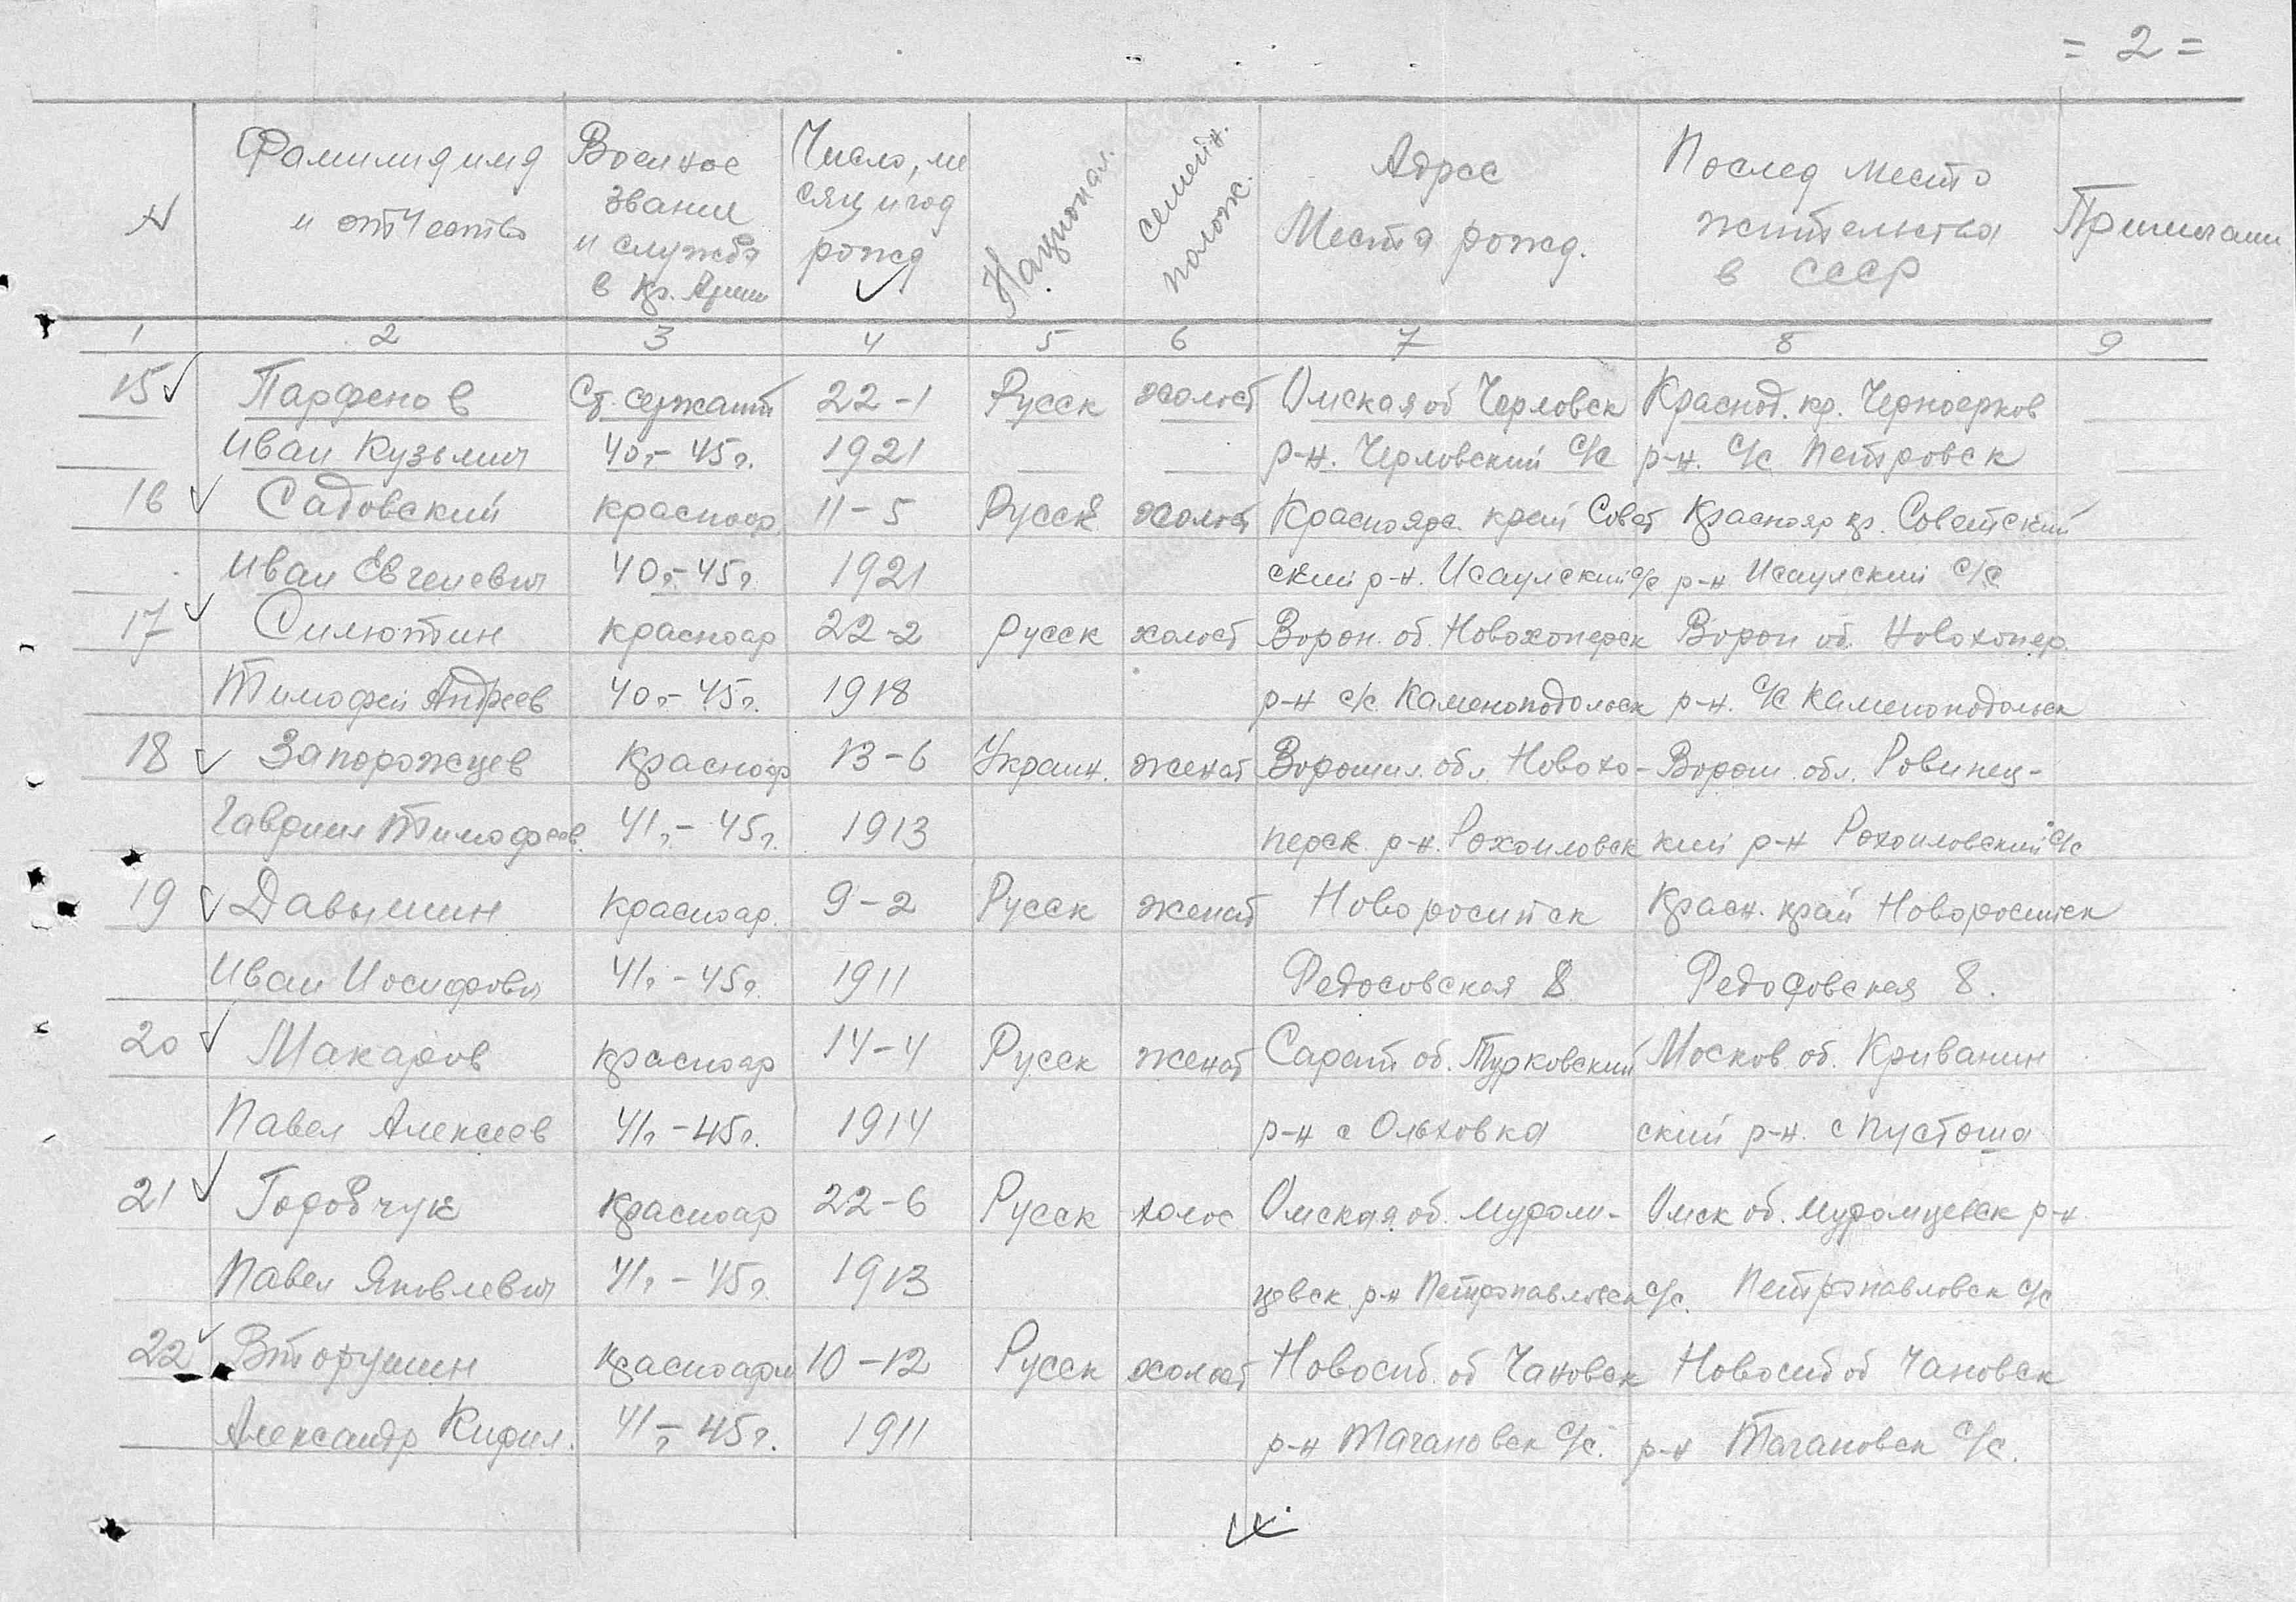 = 2 =
N Фамилия имя и отчество Военное звание и служба в Кр. Арми Число, ме сяц и год рожд Национал. семейн. полож. Адрес Места рожд. Послед место жительства в СССР Примечани
1 2 3 4 5 6 7 8 9
15 Парфенов Ст. сержант 22-1 Русск холост Омская об Черловск Краснод. кр. Черноерков
Иван Кузьмич 40г-45г. 1921 р-н. Черловский с/с р-н. с/с Петровск
16 Садовский красноар. 11-5 Русск холост Красноярс. край Совет Краснояр кр. Советский
Иван Евгеневич 40г-45г. 1921 ский р-н. Исаулский с/с р-н Исаулский с/с
17 Силютин красноар 22-2 русск холост Ворон. об. Новохоперск Ворон об. Новохопер.
Тимофей Андреев 40г-45г. 1918 р-н с/с Каменоподольск р-н. с/с Каменоподольск
18 Запорожцев Красноар 13-6 Украин. женат Ворошил. обл. Новохо- Ворош. обл. Ровинец-
Гавриил Тимофеев. 41г-45г. 1913 перск. р-н. Рохоиловск кий р-н Рохоиловский с/с
19 Давышин красноар. 9-2 Русск женат Новоросийск Красн. край Новоросийск
Иван Иосифович 41г-45г. 1911 Федосовская 8 Федосовская 8.
20 Макаров красноар 14-4 Русск женат Сарат об. Турковский Москов об. Криванин
Павел Алексеев 41г-45г. 1914 р-н с Ольховка ский р-н. с Пустоша
21 Годовчук Красноар 22-6 Русск холос Омская об. муром- Омск об. муромцевск р-н.
Павел Яковлевич 41г-45г. 1913 цевск р-н Петропавловск с/с. Петропавловск с/с
22 Вторушин Красноарм 10-12 Русск холост Новосиб. об Чановск Новосиб об Чановск
Александр Кирил. 41г-45г. 1911 р-н Тагановск с/с. р-н Тагановск с/с.